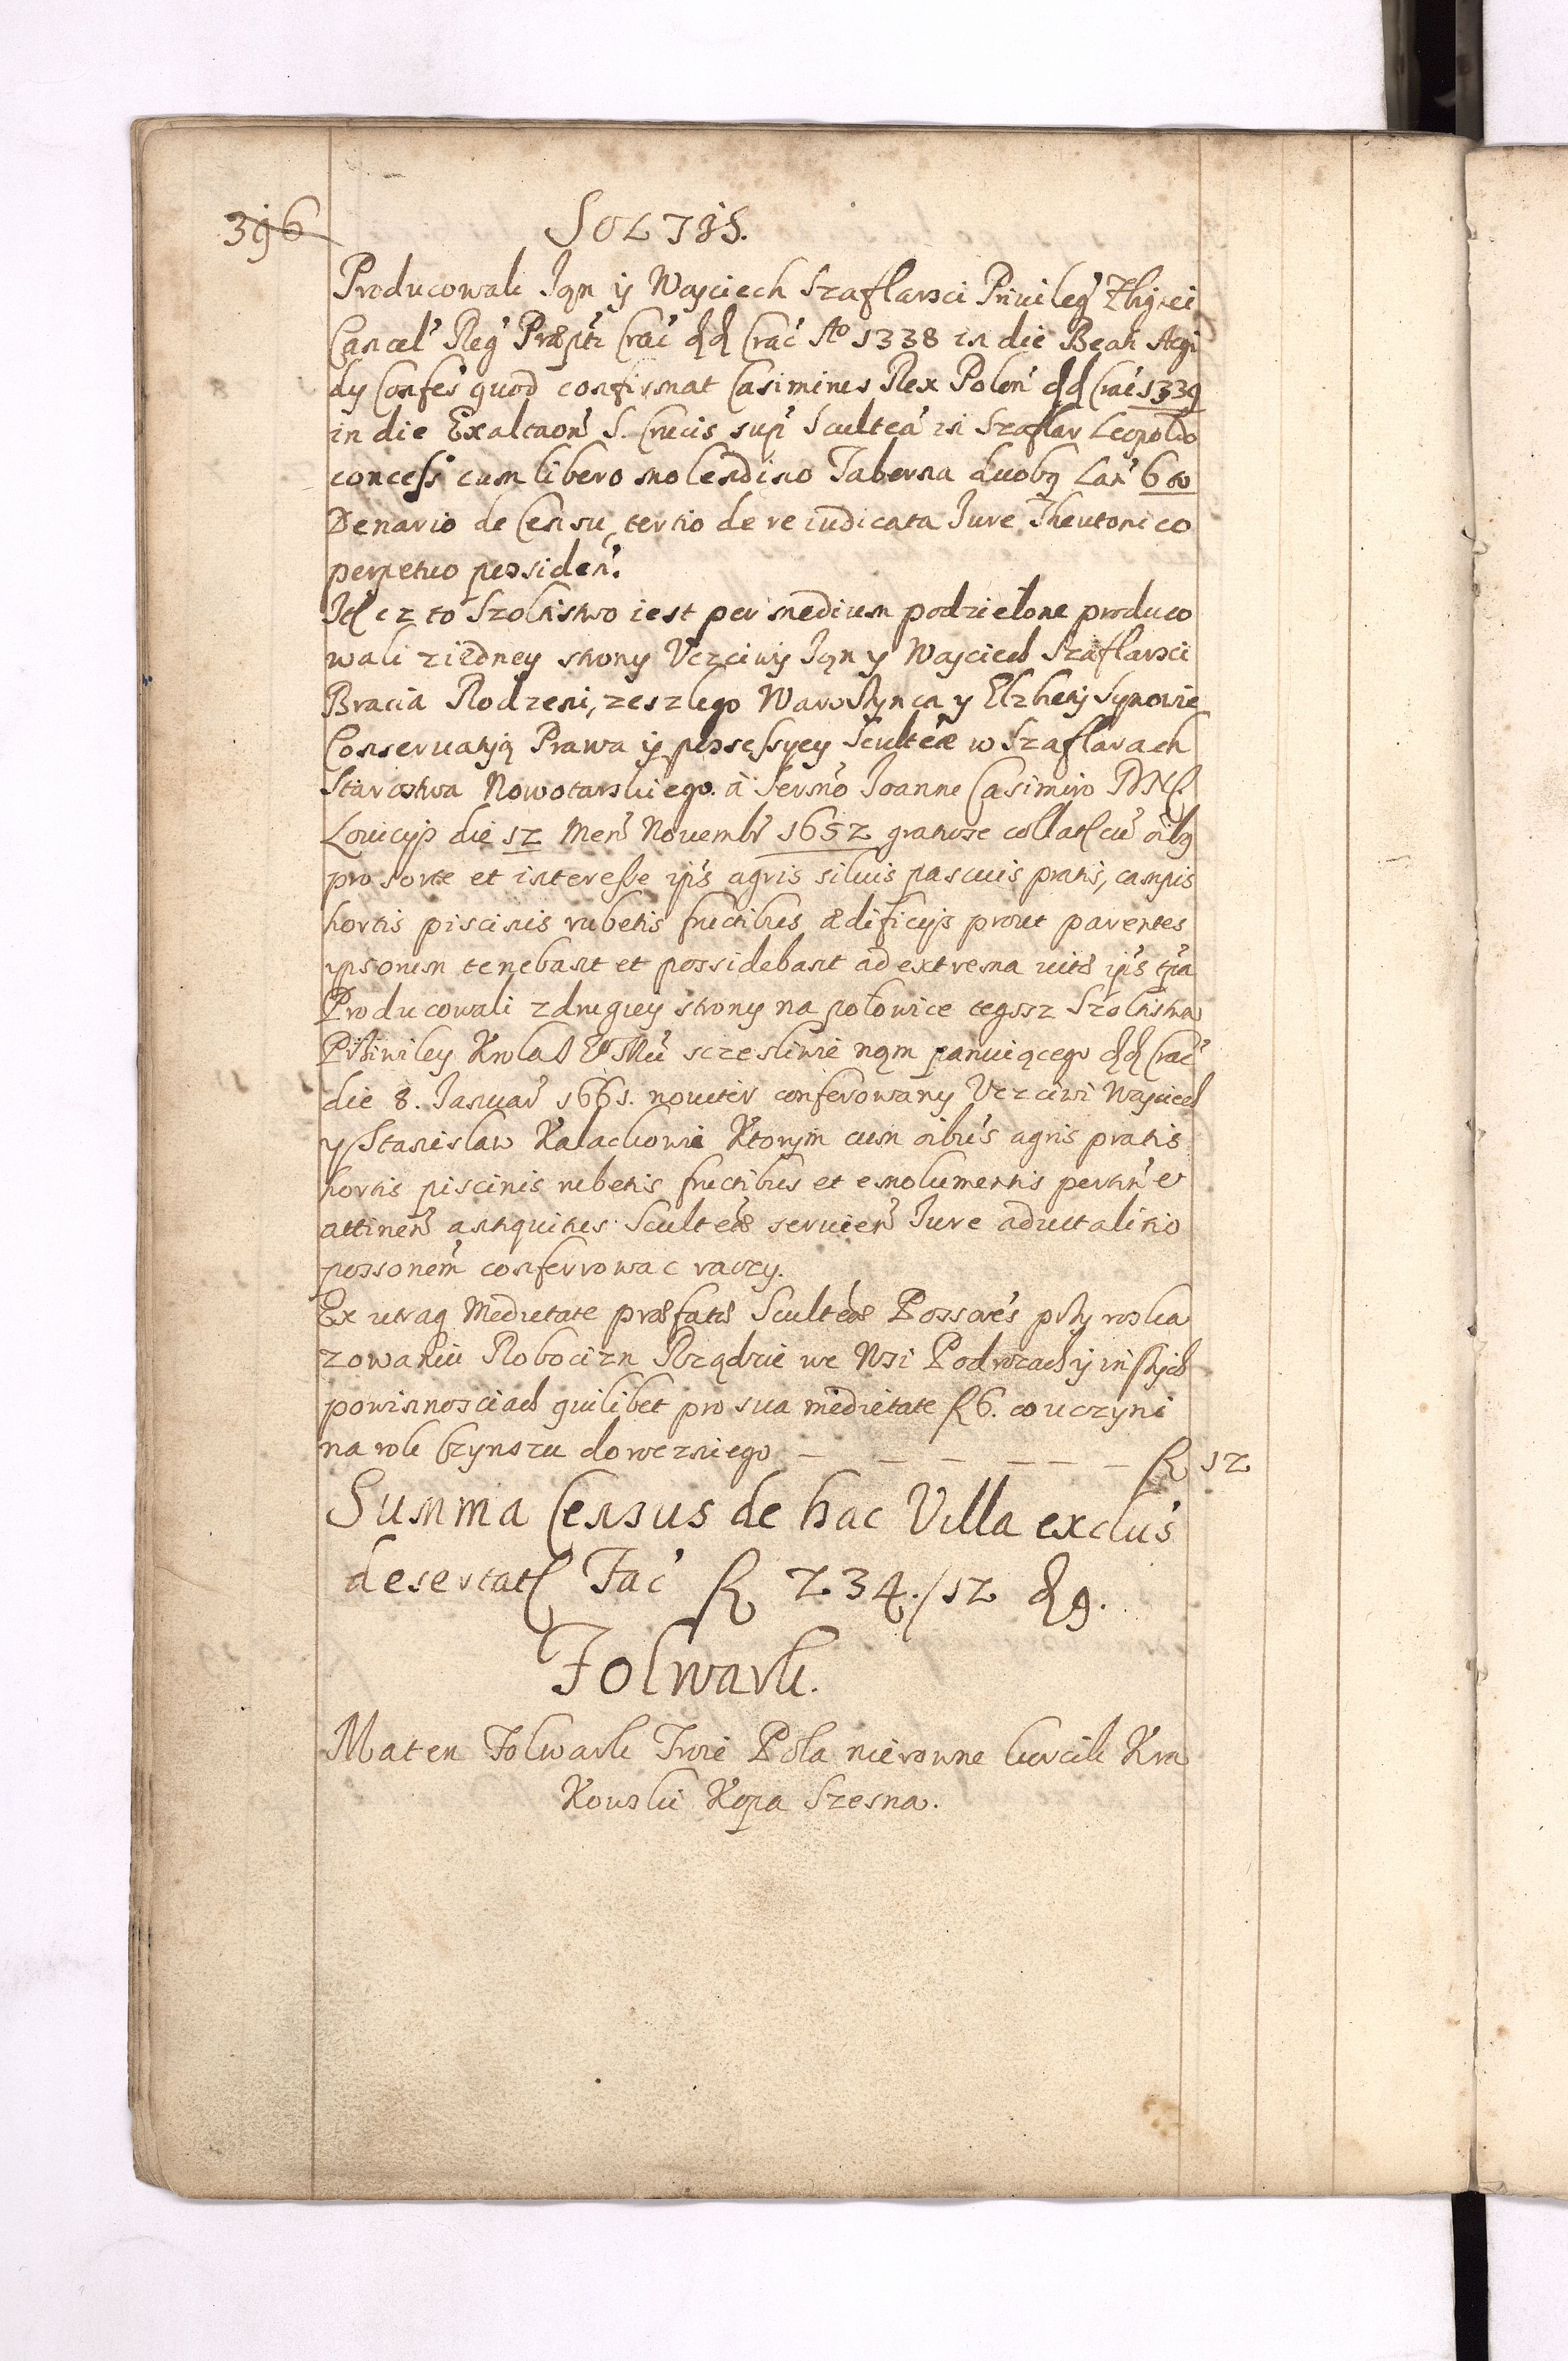 396
SOLTIS.
Producowali Jan ÿ Wayciech Szaflarsci Priuileg' Zbignei
Cancel' Reg' Præpti Crac' dd Crac' Ao 1338 in die Beati Aegi
dy Confes' quod confirmat Casimirus Rex Polon' dd Crac 1339
in die Exaltaon' S. Crucis sup' Scultea' in Szaflar Leopoldo
concessi cum libero molendino Taberna duobq Lan' 6to
Denario de Censu, tertio de re iudicata Jure Theutonico
perpetuo possiden'.
Itl cz to Szoltistwo iest per medium podzielone produco
wali ziedney strony Uczciwy Jan y Wayciech Szaflarsci
Bracia Rodzeni, zeszlego Wawrzynca y Elzbety Synowie
Conseruatią Prawa ÿ possessyey Scultetiæ w Szaflarach
Starostwa Nowotarskiego. à Sermo Joanne Casimiro DN
Louicijs die 12 Men' Nouembr' 1652 gratiose collatl cu' oibq
pro sorte et interesse ip's agris siluis pascuis pratis, campis
hortis piscinis rubetis fructibus ædificijs prout parentes
ipsorum tenebant et possidebant ad extrema uitæ ip's tpa
Producowali zdrugiey strony na połowice tegosz Szoltistwa
Priwiley Krola J E Mci sczesliwie nąm panuiącego dd Crac'
die 8. Januar' 1661. nouiter conferowany Uczciwi Wayciech
y Stanislaw Kalachowie Ktorym cum oibus agris pratis
hortis piscinis rubetis fructibus et emolumentis pertin' et
attinen' antiquitus Scultetiæ seruien' Jure aduitalitio
possonem conferrowac raczy.
Ex utraq Medietate præfatæ Scultetiæ Possores przy roska
zowaniu Robocizn Rządzie we Wsi Podwodach ÿ inszych
powinnosciach quilibet pro sua medietate fl 6. co uczyni
na rok Czynszu dorocznego — — — — — — fl 12
Summa Census de hac Villa exclus'
desertatl Fac' fl 234./12 d 9.
Folwark.
Ma ten Folwark Troie Pola nierowne kurcile Kra
Kowski Kopa Szesna.